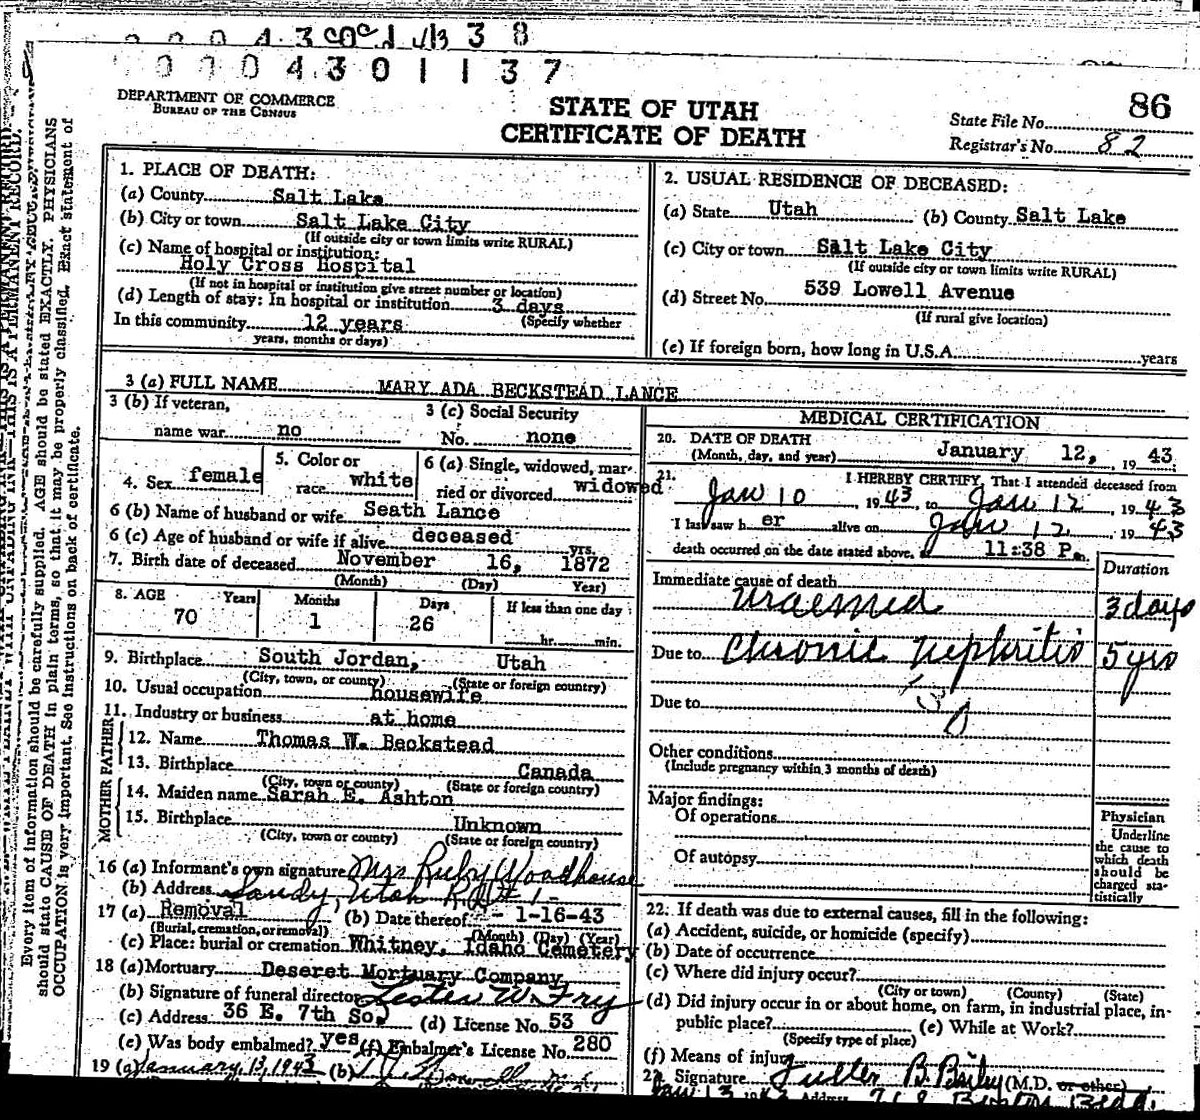 0 0 0 4 3 0 1 1 3 7
DEPARTMENT OF COMMERCE
BUREAU OF THE CENSUS
STATE OF UTAH
CERTIFICATE OF DEATH
86
State File No.
Registrar's No. 82
1. PLACE OF DEATH:
(a) County Salt Lake
(b) City or town Salt Lake City
(If outside city or town limits write RURAL)
(c) Name of hospital or institution:
Holy Cross Hospital
(If not in hospital or institution give street number or location)
(d) Length of stay: In hospital or institution 3 days
(Specify whether
In this community 12 years
years, months or days)
2. USUAL RESIDENCE OF DECEASED:
(a) State Utah (b) County Salt Lake
(c) City or town Salt Lake City
(If outside city or town limits write RURAL)
(d) Street No. 539 Lowell Avenue
(If rural give location)
(e) If foreign born, how long in U.S.A. years
3 (a) FULL NAME MARY ADA BECKSTEAD LANCE
3 (b) If veteran,
name war no
3 (c) Social Security
No. none
4. Sex female
5. Color or
race white
6 (a) Single, widowed, mar-
ried or divorced widowed
6 (b) Name of husband or wife Seath Lance
6 (c) Age of husband or wife if alive deceased yrs.
7. Birth date of deceased November 16, 1872
(Month) (Day) Year)
8. AGE Years Months Days If less than one day
70 1 26 hr. min.
9. Birthplace South Jordan, Utah
(City, town, or county) (State or foreign country)
10. Usual occupation housewife
11. Industry or business at home
FATHER
12. Name Thomas W. Beckstead
13. Birthplace Canada
(City, town or county) (State or foreign country)
MOTHER
14. Maiden name Sarah E. Ashton
15. Birthplace Unknown
(City, town or county) (State or foreign country)
16 (a) Informant's own signature Mrs Ruby Woodhouse
(b) Address Sandy, Utah R.D.# 1
17 (a) Removal (b) Date thereof 1-16-43
(Burial, cremation, or removal) (Month) (Day) (Year)
(c) Place: burial or cremation Whitney, Idaho Cemetery
18 (a) Mortuary Deseret Mortuary Company
(b) Signature of funeral director Lester W. Fry
(c) Address 36 E. 7th So. (d) License No. 53
(e) Was body embalmed? yes (f) Embalmer's License No. 280
19 (a) January, 13, 1943 (b)
MEDICAL CERTIFICATION
20. DATE OF DEATH
(Month, day, and year) January 12, 1943
21. I HEREBY CERTIFY, That I attended deceased from
Jan 10, 1943, to Jan 12, 1943
I last saw her alive on Jan 12 1943
death occurred on the date stated above, at 11:38 P m.
Duration
Immediate cause of death
Uraemia 3 days
Due to Chronic Nephritis 5 yrs
Due to
Other conditions
(Include pregnancy within 3 months of death)
Major findings:
Of operations
Of autopsy
Physician
Underline
the cause to
which death
should be
charged sta-
tistically
22. If death was due to external causes, fill in the following:
(a) Accident, suicide, or homicide (specify)
(b) Date of occurrence
(c) Where did injury occur?
(City or town) (County) (State)
(d) Did injury occur in or about home, on farm, in industrial place, in-
public place? (e) While at Work?
(Specify type of place)
(f) Means of injury
Signature Fuller B. Bailey (M.D. or other)
Every item of information should be carefully supplied. AGE should be stated EXACTLY. PHYSICIANS
should state CAUSE OF DEATH in plain terms, so that it may be properly classified. Exact statement of
OCCUPATION is very important. See instructions on back of certificate.